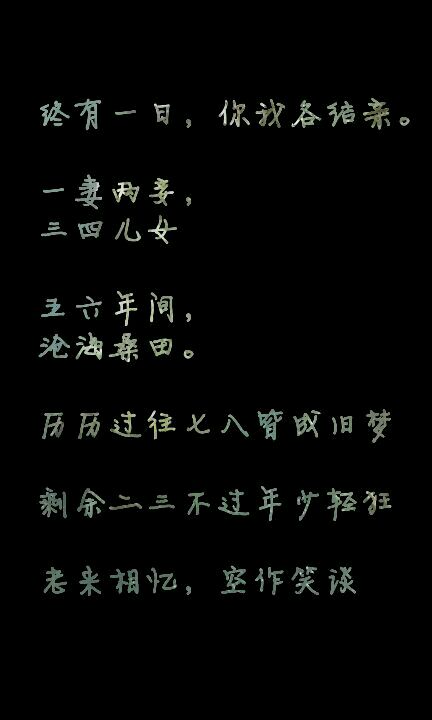 终有一日，你我各结亲。
一妻两妾，
三四儿女
五六年间，
沧海桑田。
历历过往七八皆成旧梦
剩余二三不过年少轻狂
老来相忆，空作笑谈